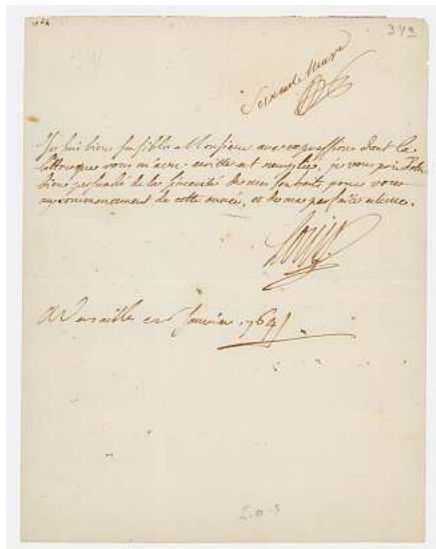 342
Je suis bien sensible Monsieur aux expressions dont la
lettre que vous m'avez écritte est remplie, je vous prie d'etre
bien persuadé de la sincerité de mes souhaits pour vous
au commencement de cette année, et de ma parfaite estime.
Louis
A Versailles ce Janvier 1764